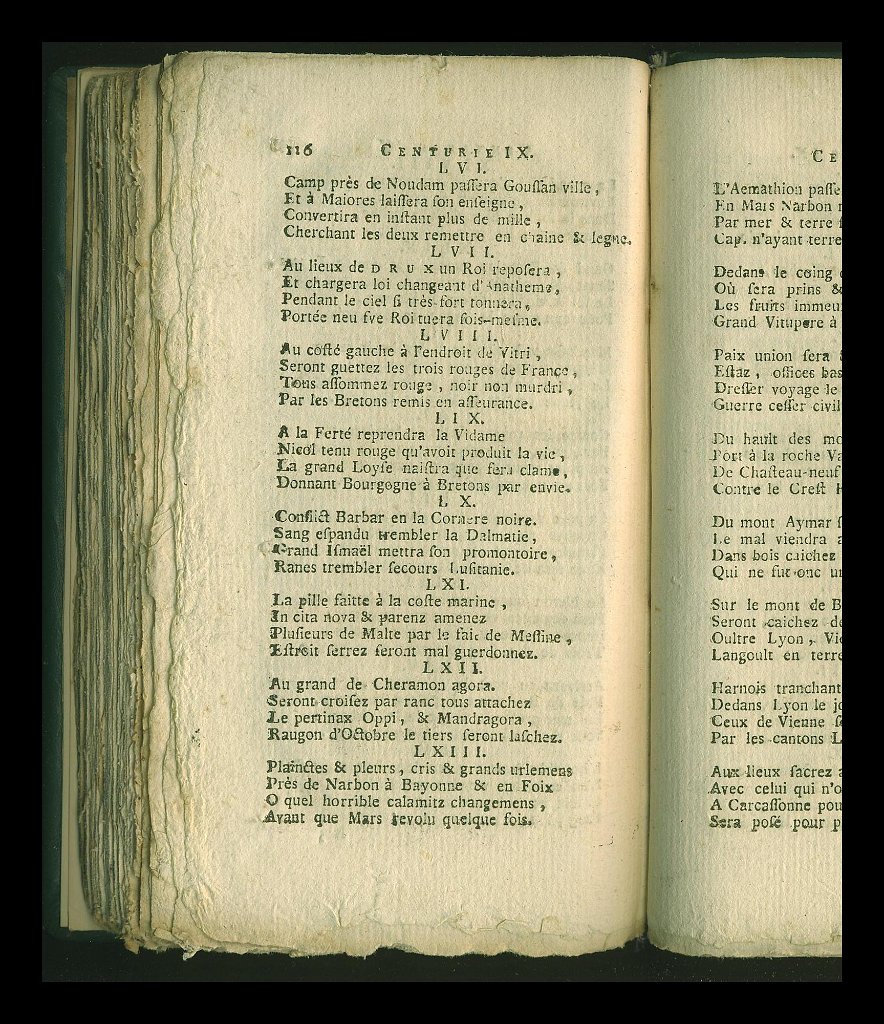 116 CENTURIE IX.
LVI.
Camp près de Noudam paſſera Gouſſan ville,
Et à Maiores laiſſera ſon enſeigne,
Convertira en inſtant plus de mille,
Cherchant les deux remettre en chaine & legne.
LVII.
Au lieux de DRUX un Roi repoſera,
Et chargera loi changeant d'Anatheme,
Pendant le ciel ſi très-fort tonnera,
Portée neu fve Roi tuera ſois-meſme.
LVIII.
Au coſté gauche à l'endroit de Vitri,
Seront guettez les trois rouges de France,
Tous aſſommez rouge, noir non murdri,
Par les Bretons remis en aſſeurance.
LIX.
A la Ferté reprendra la Vidame
Nicol tenu rouge qu'avoit produit la vie,
La grand Loyſe naiſtra que fera clame,
Donnant Bourgogne à Bretons par envie.
LX.
Conflict Barbar en la Cornere noire.
Sang eſpandu trembler la Dalmatie,
Grand Iſmaël mettra ſon promontoire,
Ranes trembler ſecours Luſitanie.
LXI.
La pille faitte à la coſte marine,
In cita nova & parenz amenez
Pluſieurs de Malte par le fait de Meſſine,
Eſtroit ſerrez ſeront mal guerdonnez.
LXII.
Au grand de Cheramon agora.
Seront croiſez par ranc tous attachez
Le pertinax Oppi, & Mandragora,
Raugon d'Octobre le tiers ſeront laſchez.
LXIII.
Plainctes & pleurs, cris & grands urlemens
Près de Narbon à Bayonne & en Foix
O quel horrible calamitz changemens,
Avant que Mars revolu quelque fois.
CE
L'Aemathion paſſe
En Mars Narbon
Par mer & terre
Cap. n'ayant terre
Dedans le coing
Où ſera prins &
Les fruits immeu
Grand Vitupere à
Paix union ſera
Eſtaz, offices bas
Dreſſer voyage le
Guerre ceſſer civil
Du hault des mo
Port à la roche Va
De Chaſteau-neuf
Contre le Creſt
Du mont Aymar
Le mal viendra
Dans bois caichez
Qui ne fut onc un
Sur le mont de B
Seront caichez de
Oultre Lyon, Vie
Langoult en terre
Harnois tranchant
Dedans Lyon le jo
Ceux de Vienne
Par les cantons L
Aux lieux ſacrez a
Avec celui qui n'o
A Carcaſſonne pou
Sera poſé pour p